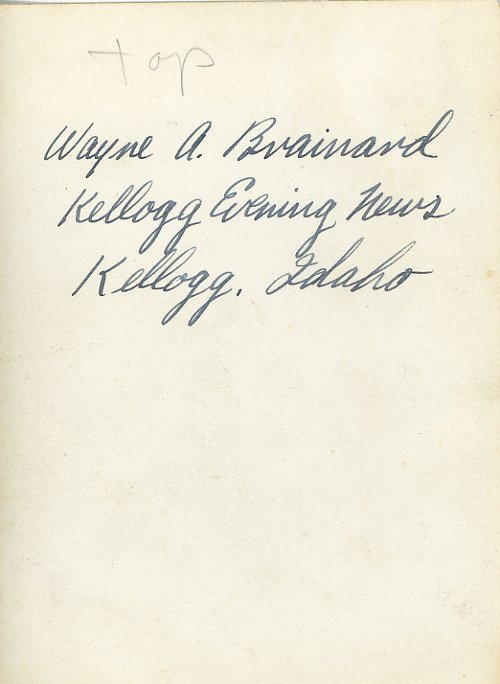 top
Wayne A. Brainard
Kellogg Evening News
Kellogg, Idaho